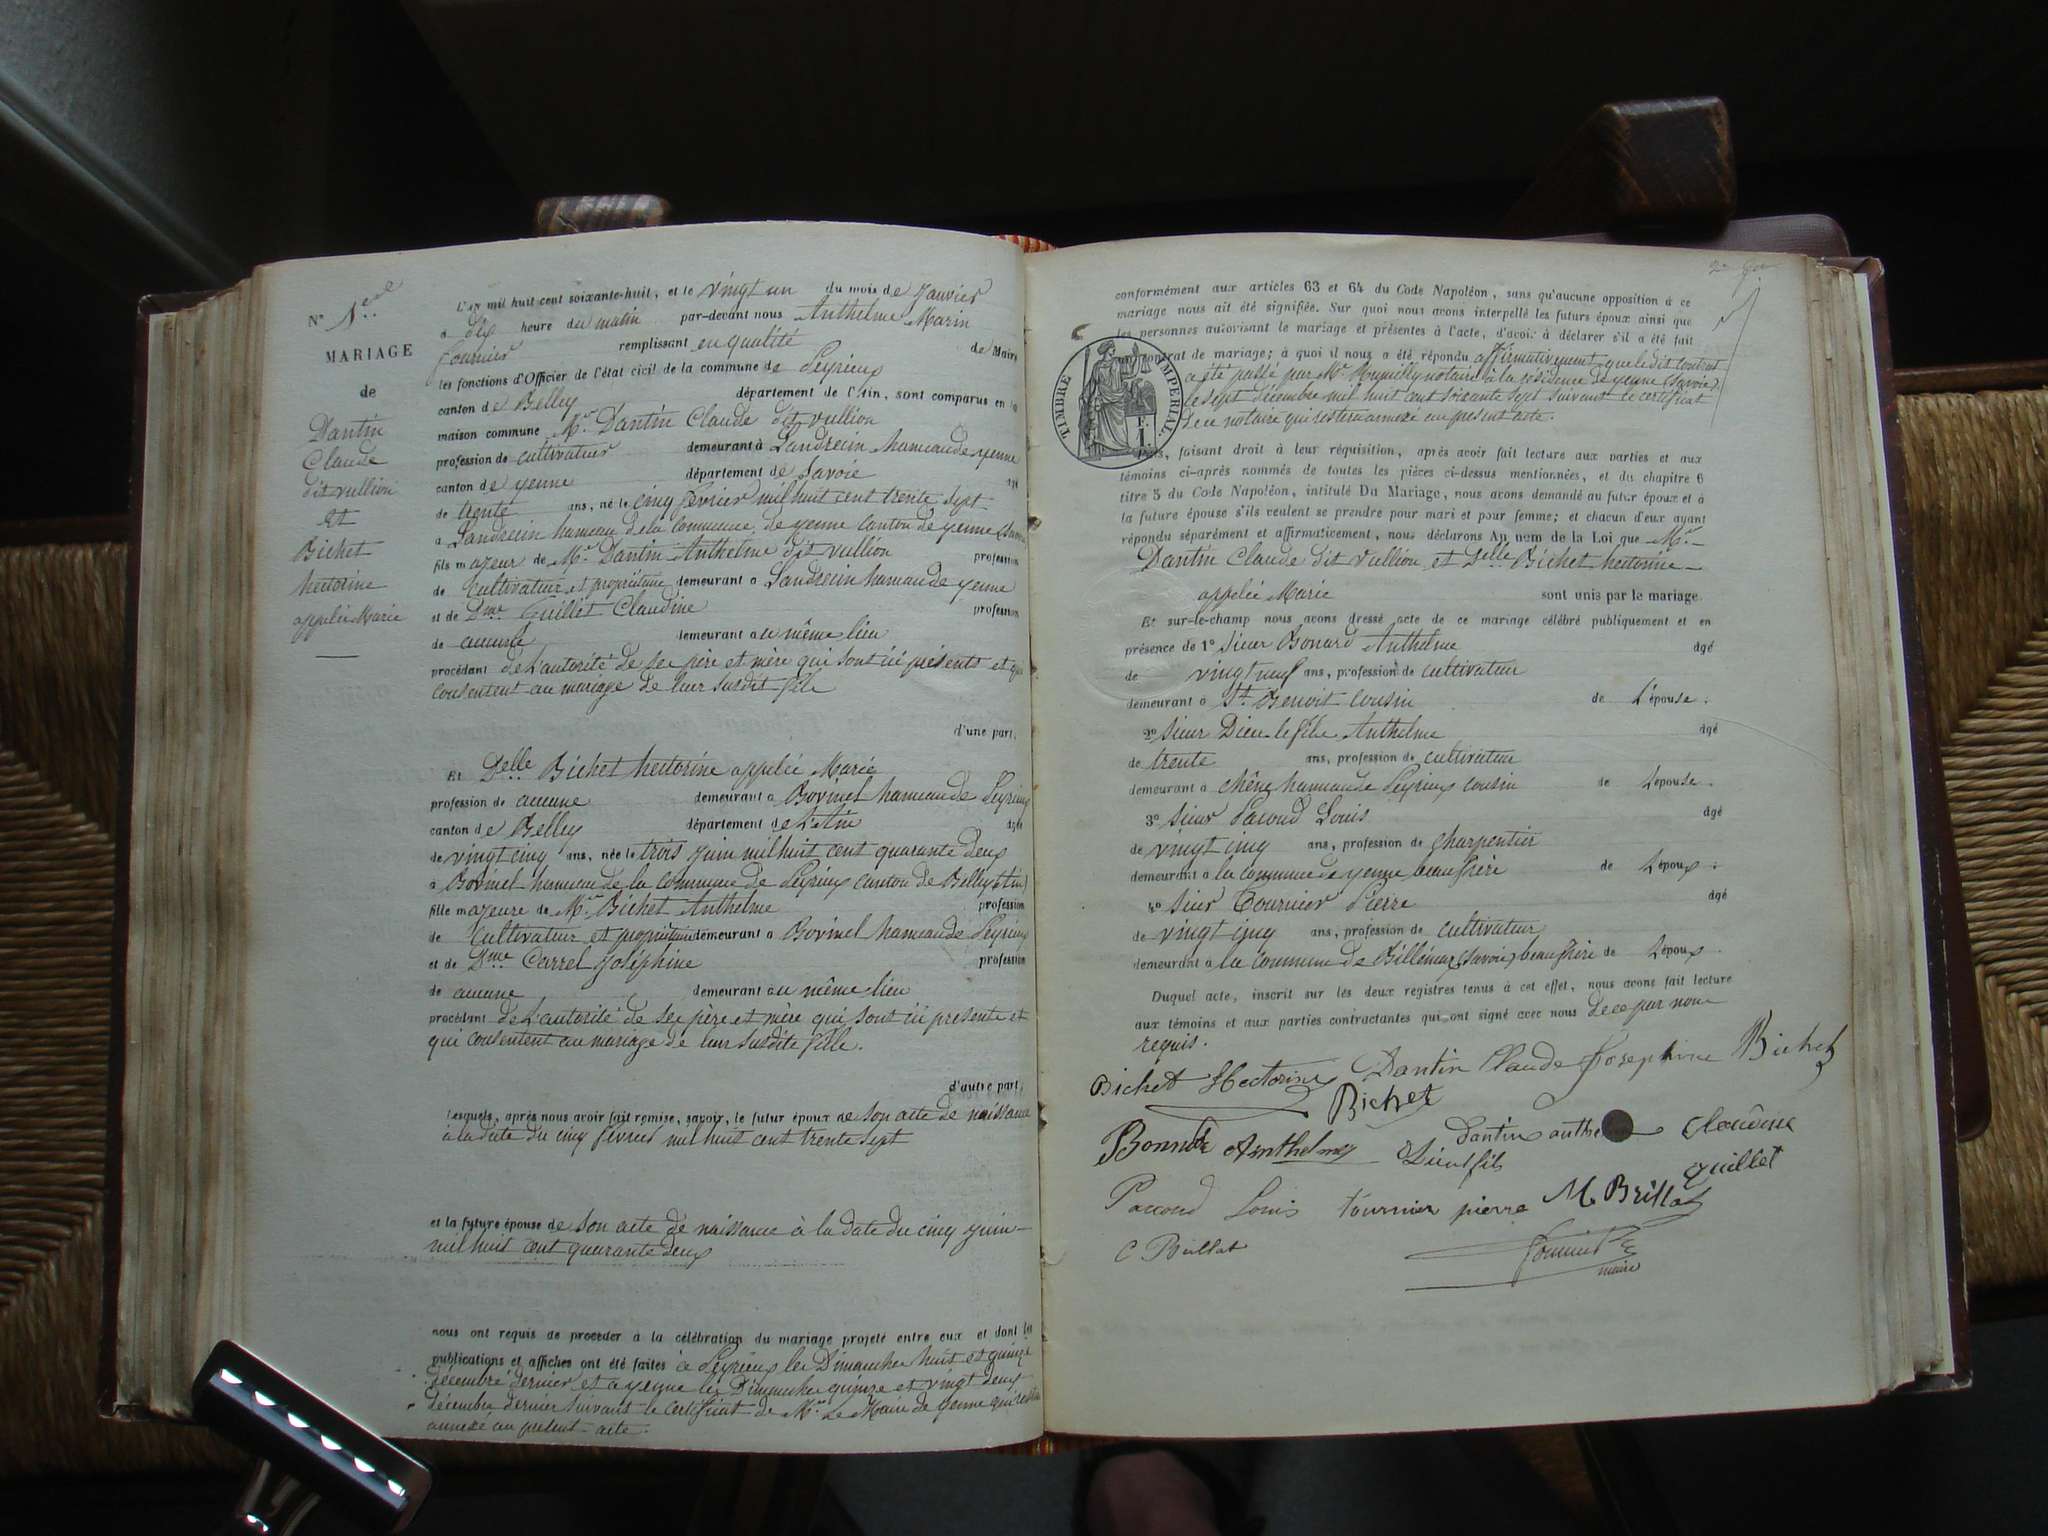 N° 1er
MARIAGE
de
Dantin
Claude
dit vullion
et
Bichet
hectorine
appelée Marie
L'an mil huit cent soixante-huit, et le vingt un du mois de Janvier
à dix heure du matin par-devant nous Anthelme Marin
fournier remplissant en qualité de Maire
les fonctions d'Officier de l'état civil de la commune de Peyrieux
canton de Belley département de l'Ain, sont comparus en la
maison commune Mr Dantin Claude dit vullion
profession de cultivateur demeurant à Landrecin hameau de yenne
canton de yenne département de Savoie âgé
de trente ans, né le cinq février mil huit cent trente sept
à Landrecin hameau de la commune de yenne canton de yenne (Savoie
fils majeur de Mr Dantin Anthelme dit vullion profession
de Cultivateur et propriétaire demeurant à Landrecin hameau de yenne
et de Dme Guillet Claudine profession
de aucune demeurant au même lieu
procédant de L'autorité de ses père et mère qui sont ici présents et qui
consentent au mariage de leur susdit fils
d'une part,
Et Delle Bichet hectorine appelée Marie
profession de aucune demeurant à Bovinel hameau de Peyrieux
canton de Belley département de L'Ain âgée
de vingt cinq ans, née le trois Juin mil huit cent quarante deux
à Bovinel hameau de la commune de Peyrieux canton de Belley (Ain)
fille majeure de Mr Bichet Anthelme profession
de Cultivateur et propriétaire demeurant à Bovinel hameau de Peyrieux
et de Dme Carrel Joséphine profession
de aucune demeurant au même lieu
procédant de L'autorité de ses père et mère qui sont ici presents et
qui consentent au mariage de leur susdite fille.
d'autre part,
Lesquels, après nous avoir fait remise, savoir, le futur époux de son acte de naissance
à la date du cinq février mil huit cent trente sept
et la future épouse de son acte de naissance à la date du cinq juin
mil huit cent quarante deux
nous ont requis de procéder à la célébration du mariage projeté entre eux et dont les
publications et affiches ont été faites à Peyrieux les Dimanches huit et quinze
décembre dernier et a yenne les Dimanches quinze et vingt deux
décembre dernier suivant le certificat de Mr Le Maire de yenne qui restera
annexé au présent acte.
conformément aux articles 63 et 64 du Code Napoléon, sans qu'aucune opposition à ce
mariage nous ait été signifiée. Sur quoi nous avons interpellé les futurs époux ainsi que
les personnes autorisant le mariage et présentes à l'acte, d'avoir à déclarer s'il a été fait
contrat de mariage; à quoi il nous a été répondu affirmativement que le dit contrat
a été passé par Mr Rumilly notaire à la résidence de yenne (Savoie)
le sept décembre mil huit cent soixante sept suivant le certificat
de ce notaire qui restera annexé au présent acte.
TIMBRE IMPÉRIAL.
F.
1
faisant droit à leur réquisition, après avoir fait lecture aux parties et aux
témoins ci-après nommés de toutes les pièces ci-dessus mentionnées, et du chapitre 6
titre 5 du Code Napoléon, intitulé Du Mariage, nous avons demandé au futur époux et à
la future épouse s'ils veulent se prendre pour mari et pour femme; et chacun d'eux ayant
répondu séparément et affirmativement, nous déclarons Au nom de la Loi que Mr
Dantin Claude dit vullion et Delle Bichet hectorine
appelée Marie sont unis par le mariage.
Et sur-le-champ nous avons dressé acte de ce mariage célébré publiquement et en
présence de 1° sieur Bonard Anthelme âgé
de vingt neuf ans, profession de cultivateur
demeurant à St Benoit cousin de L'épouse.
2° sieur Dieu-le-fils Anthelme âgé
de trente ans, profession de cultivateur
demeurant à chêne hameau de Peyrieux cousin de L'épouse.
3° sieur Pacoud Louis âgé
de vingt cinq ans, profession de charpentier
demeurant à la commune de yenne beau frère de L'époux.
4° sieur Tournier Pierre âgé
de vingt cinq ans, profession de cultivateur
demeurant à la commune de Billémaz (Savoie) beau frère de L'époux.
Duquel acte, inscrit sur les deux registres tenus à cet effet, nous avons fait lecture
aux témoins et aux parties contractantes qui ont signé avec nous de ce par nous
requis.
Bichet Hectorine Dantin Claude Josephine Bichet
Bichet
Dantin anthe Cloudine
Guillet
Anthelme Dieu le fils
Paccoud Louis tournier pierre M Brillat
C Brillat
fournier
maire